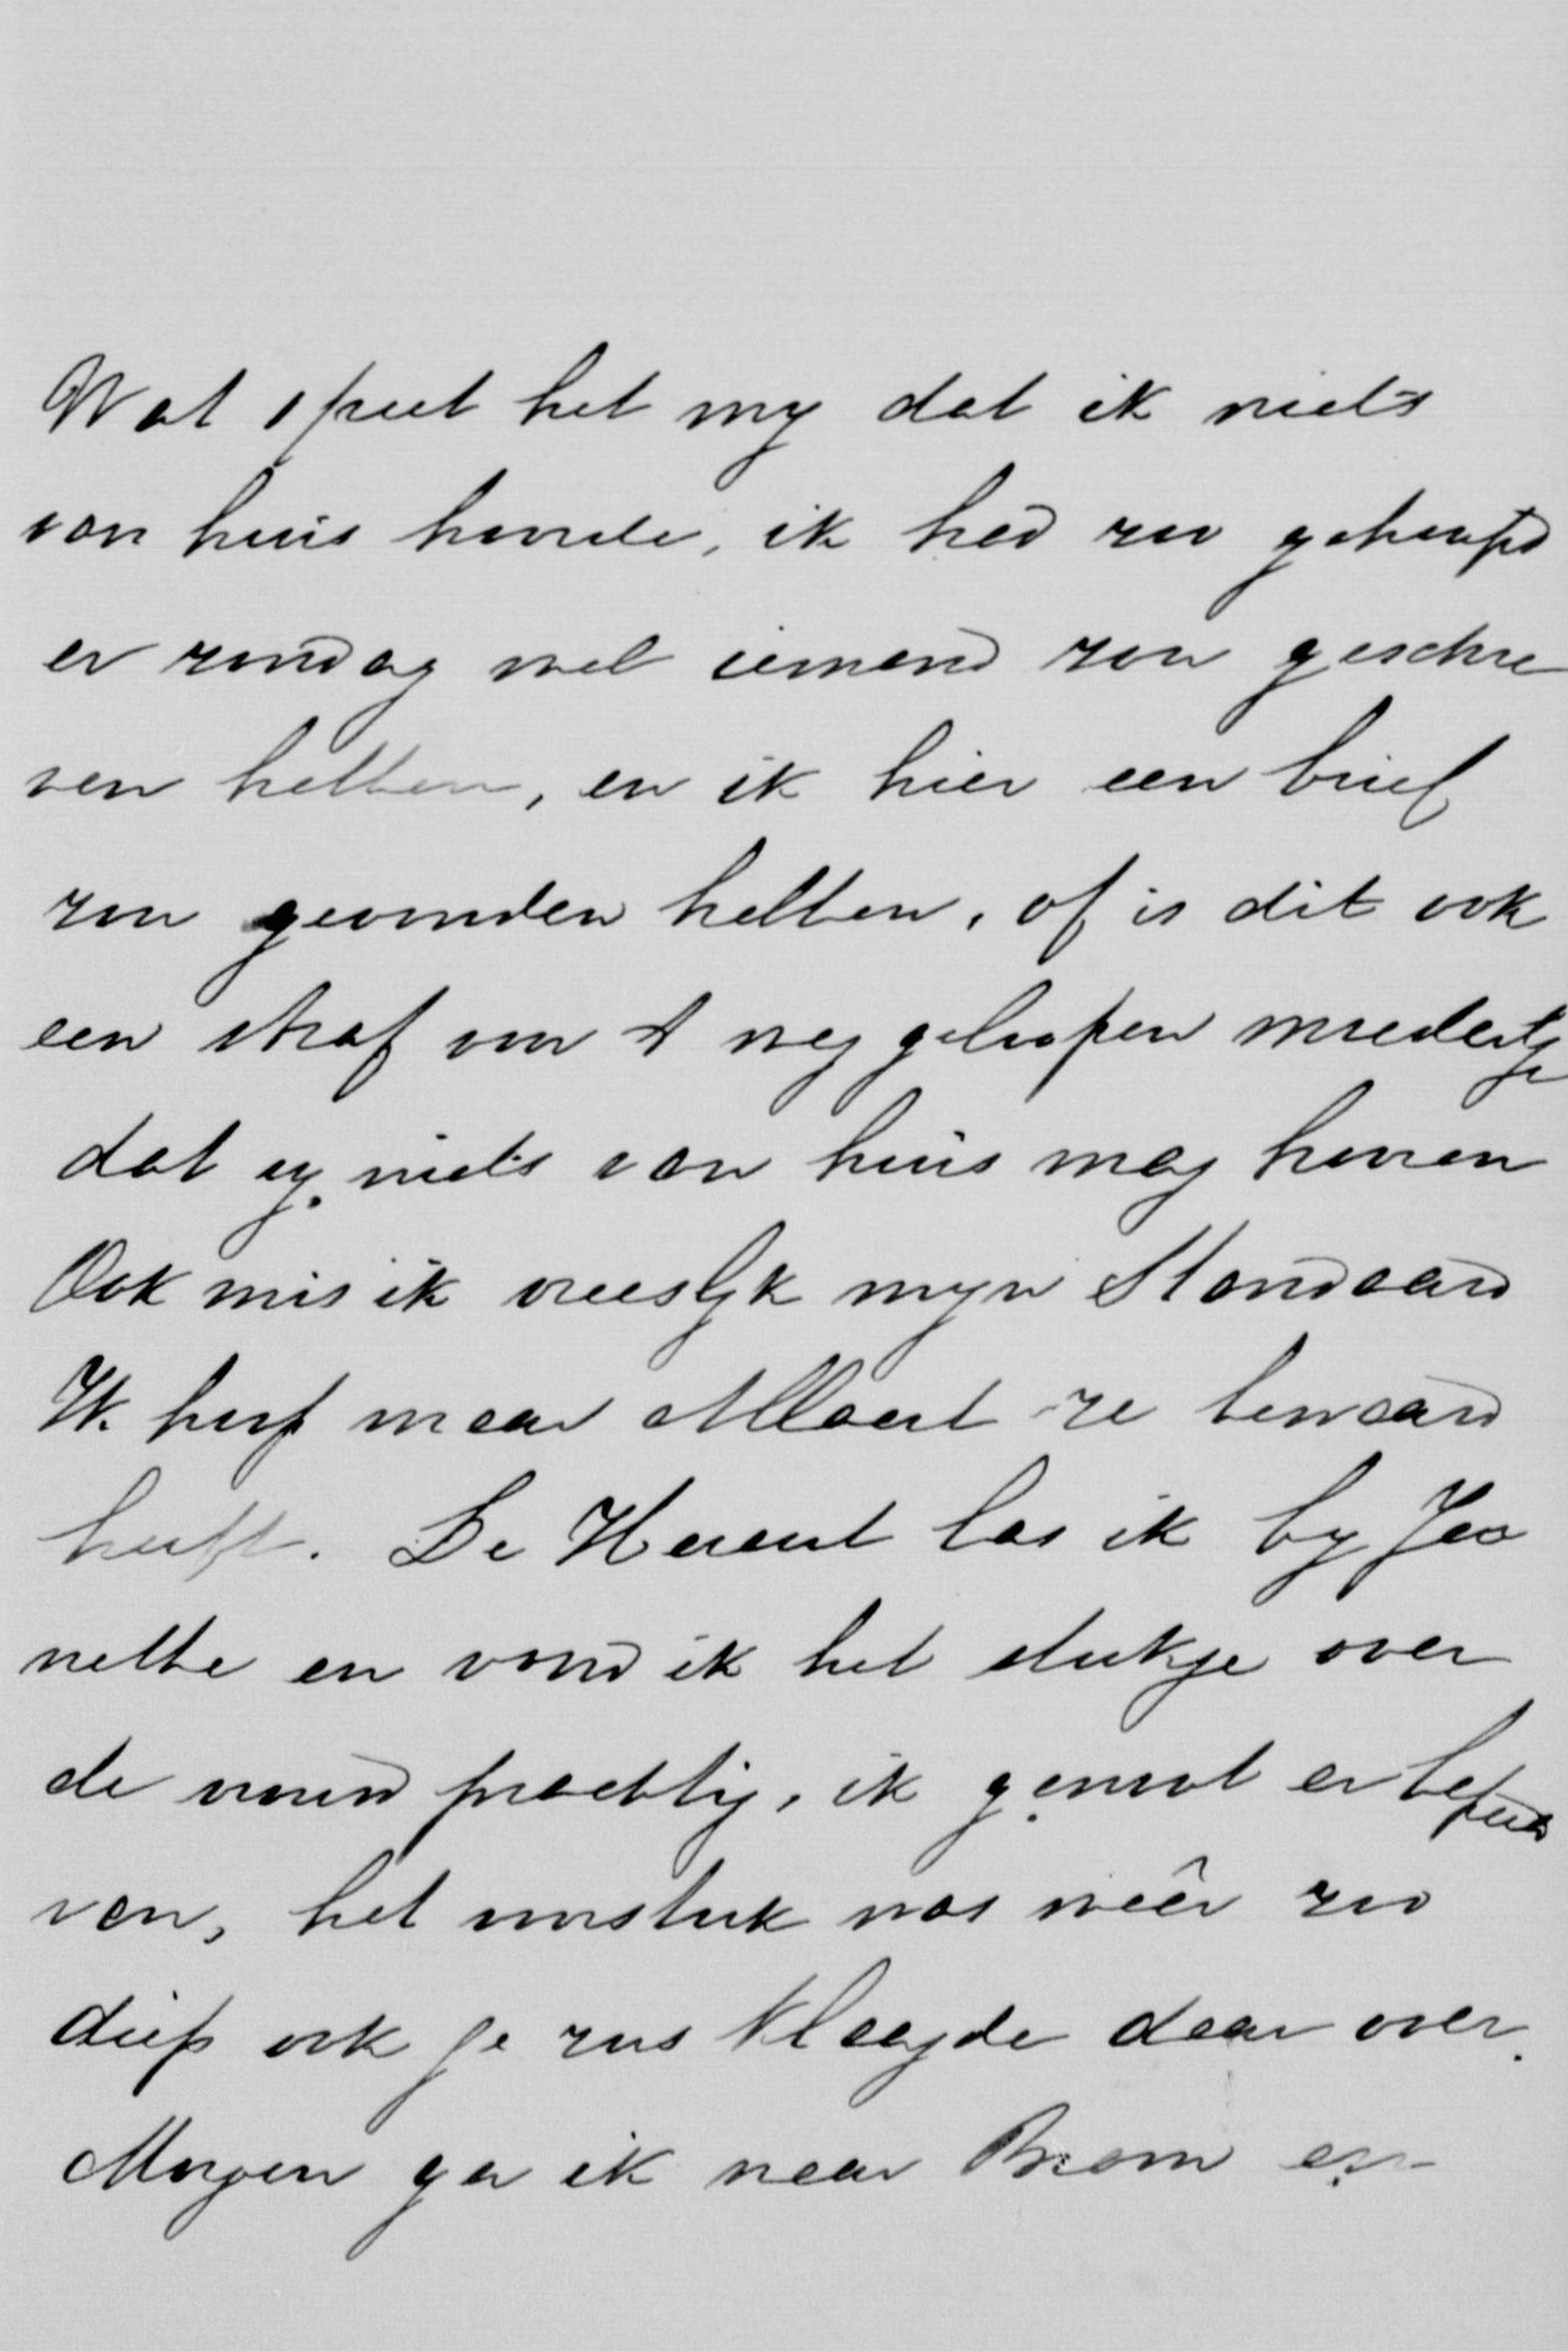 Wat speet het my dat ik niets
van huis hoorde, ik had zoo gehoopt
er zondag wel iemand zou geschre
ven hebben, en ik hier een brief
zou gevonden hebben, of is dit ook
een straf voor 't weg geloopen moedertje
dat zy niets van huis mag hooren
Ook mis ik vreeslyk myn Standaard
Ik hoop maar Allaert ze bewaard
heeft. De Heraut las ik by Jea
nette en vond ik het stukje over
de vrouw prachtig, ik genoot er bepaald
van, het voorstuk was weêr zoo
diep ook je zus klaagde daar over.
Morgen ga ik naar en